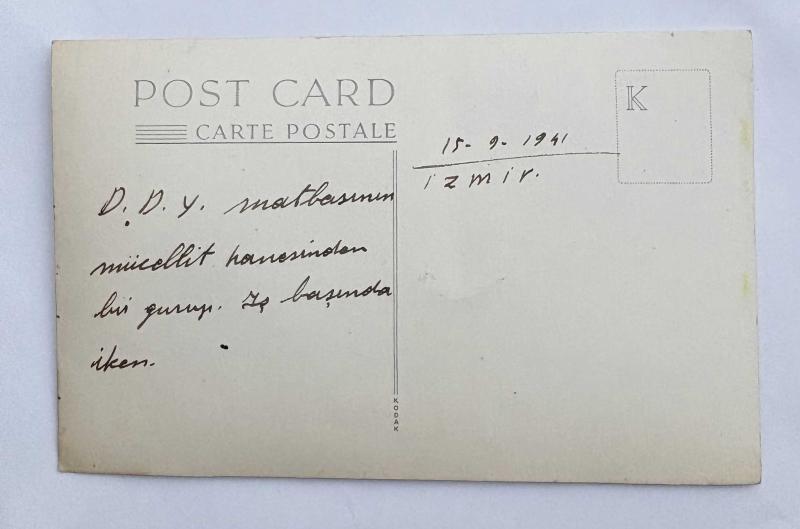 POST CARD
CARTE POSTALE
K
15-9-1941
izmir.
D.D.Y. matbasının
mücellit hanesinden
bir gurup. İş başında
iken.
KODAK